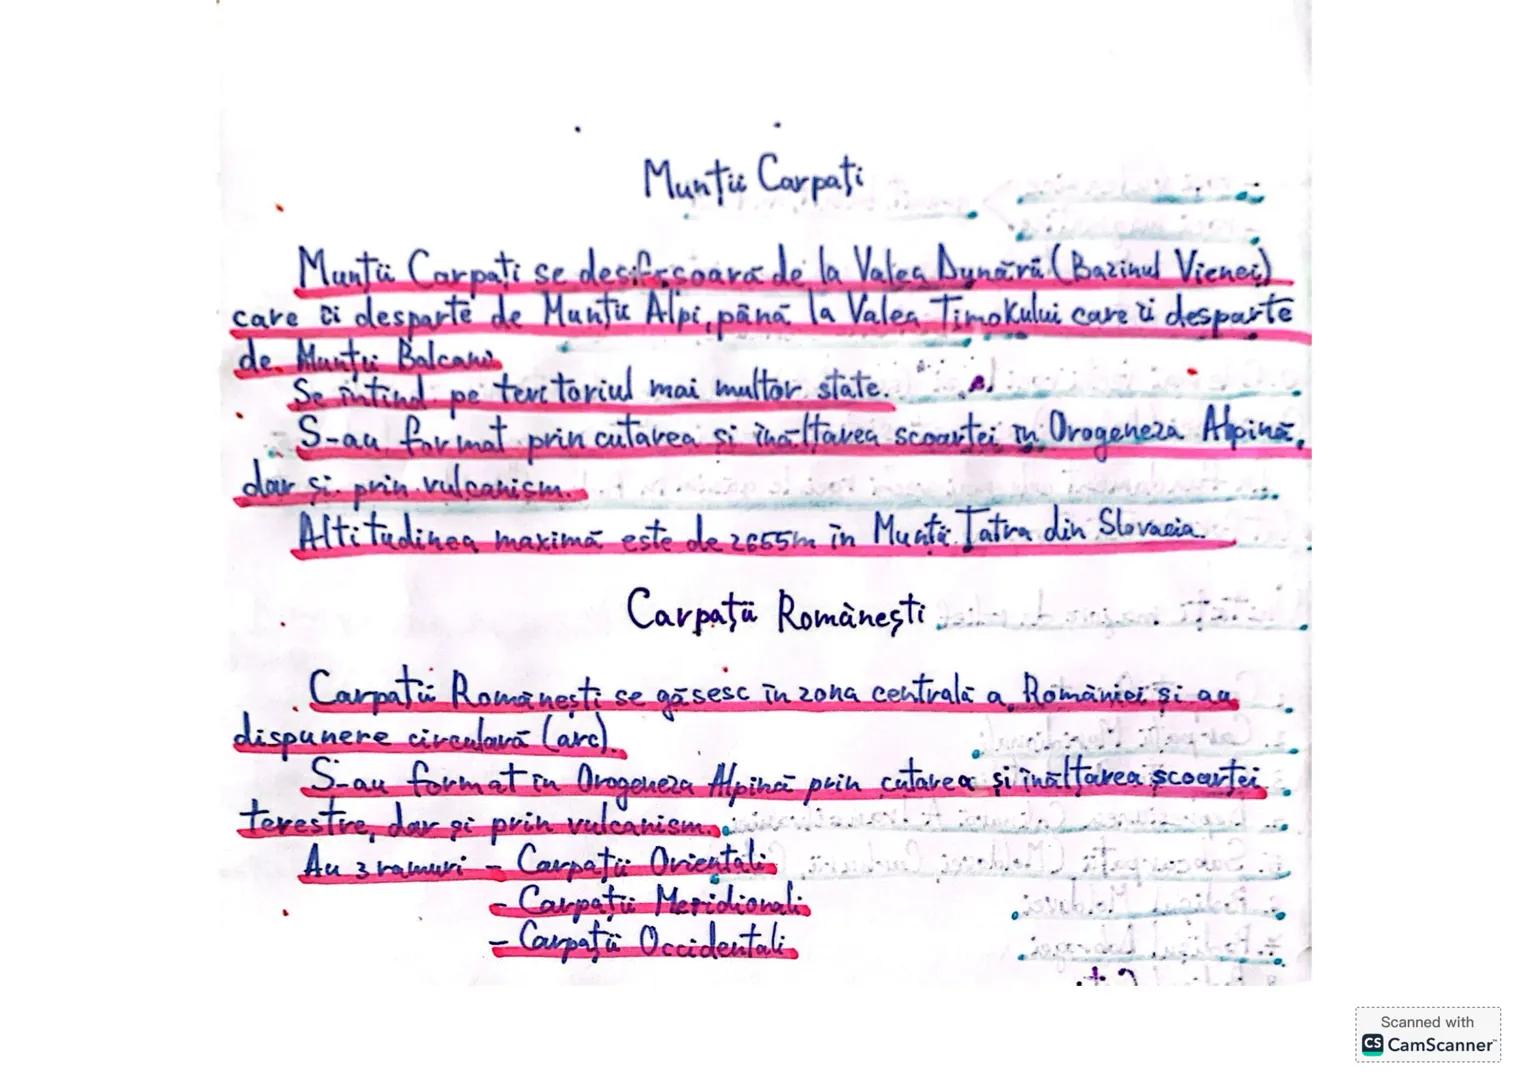 Munții Carpați
Munții Carpați se desfășoară de la Valea Dunării (Bazinul Vienei)
care îi desparte de Munții Alpi, până la Valea Timokului care îi desparte
de Munții Balcani
Se întind pe teritoriul mai multor state.
S-au format prin cutarea și înălțarea scoarței în Orogeneza Alpină,
dar și prin vulcanism.
Altitudinea maximă este de 2655m în Munții Tatra din Slovacia.
Carpații Românești
Carpații Românești se găsesc în zona centrală a României și au
dispunere circulară (arc).
S-au format în Orogeneza Alpină prin cutarea și înălțarea scoarței
terestre, dar și prin vulcanism.
Au 3 ramuri - Carpații Orientali
- Carpații Meridionali
- Carpații Occidentali
Scanned with
CS CamScanner